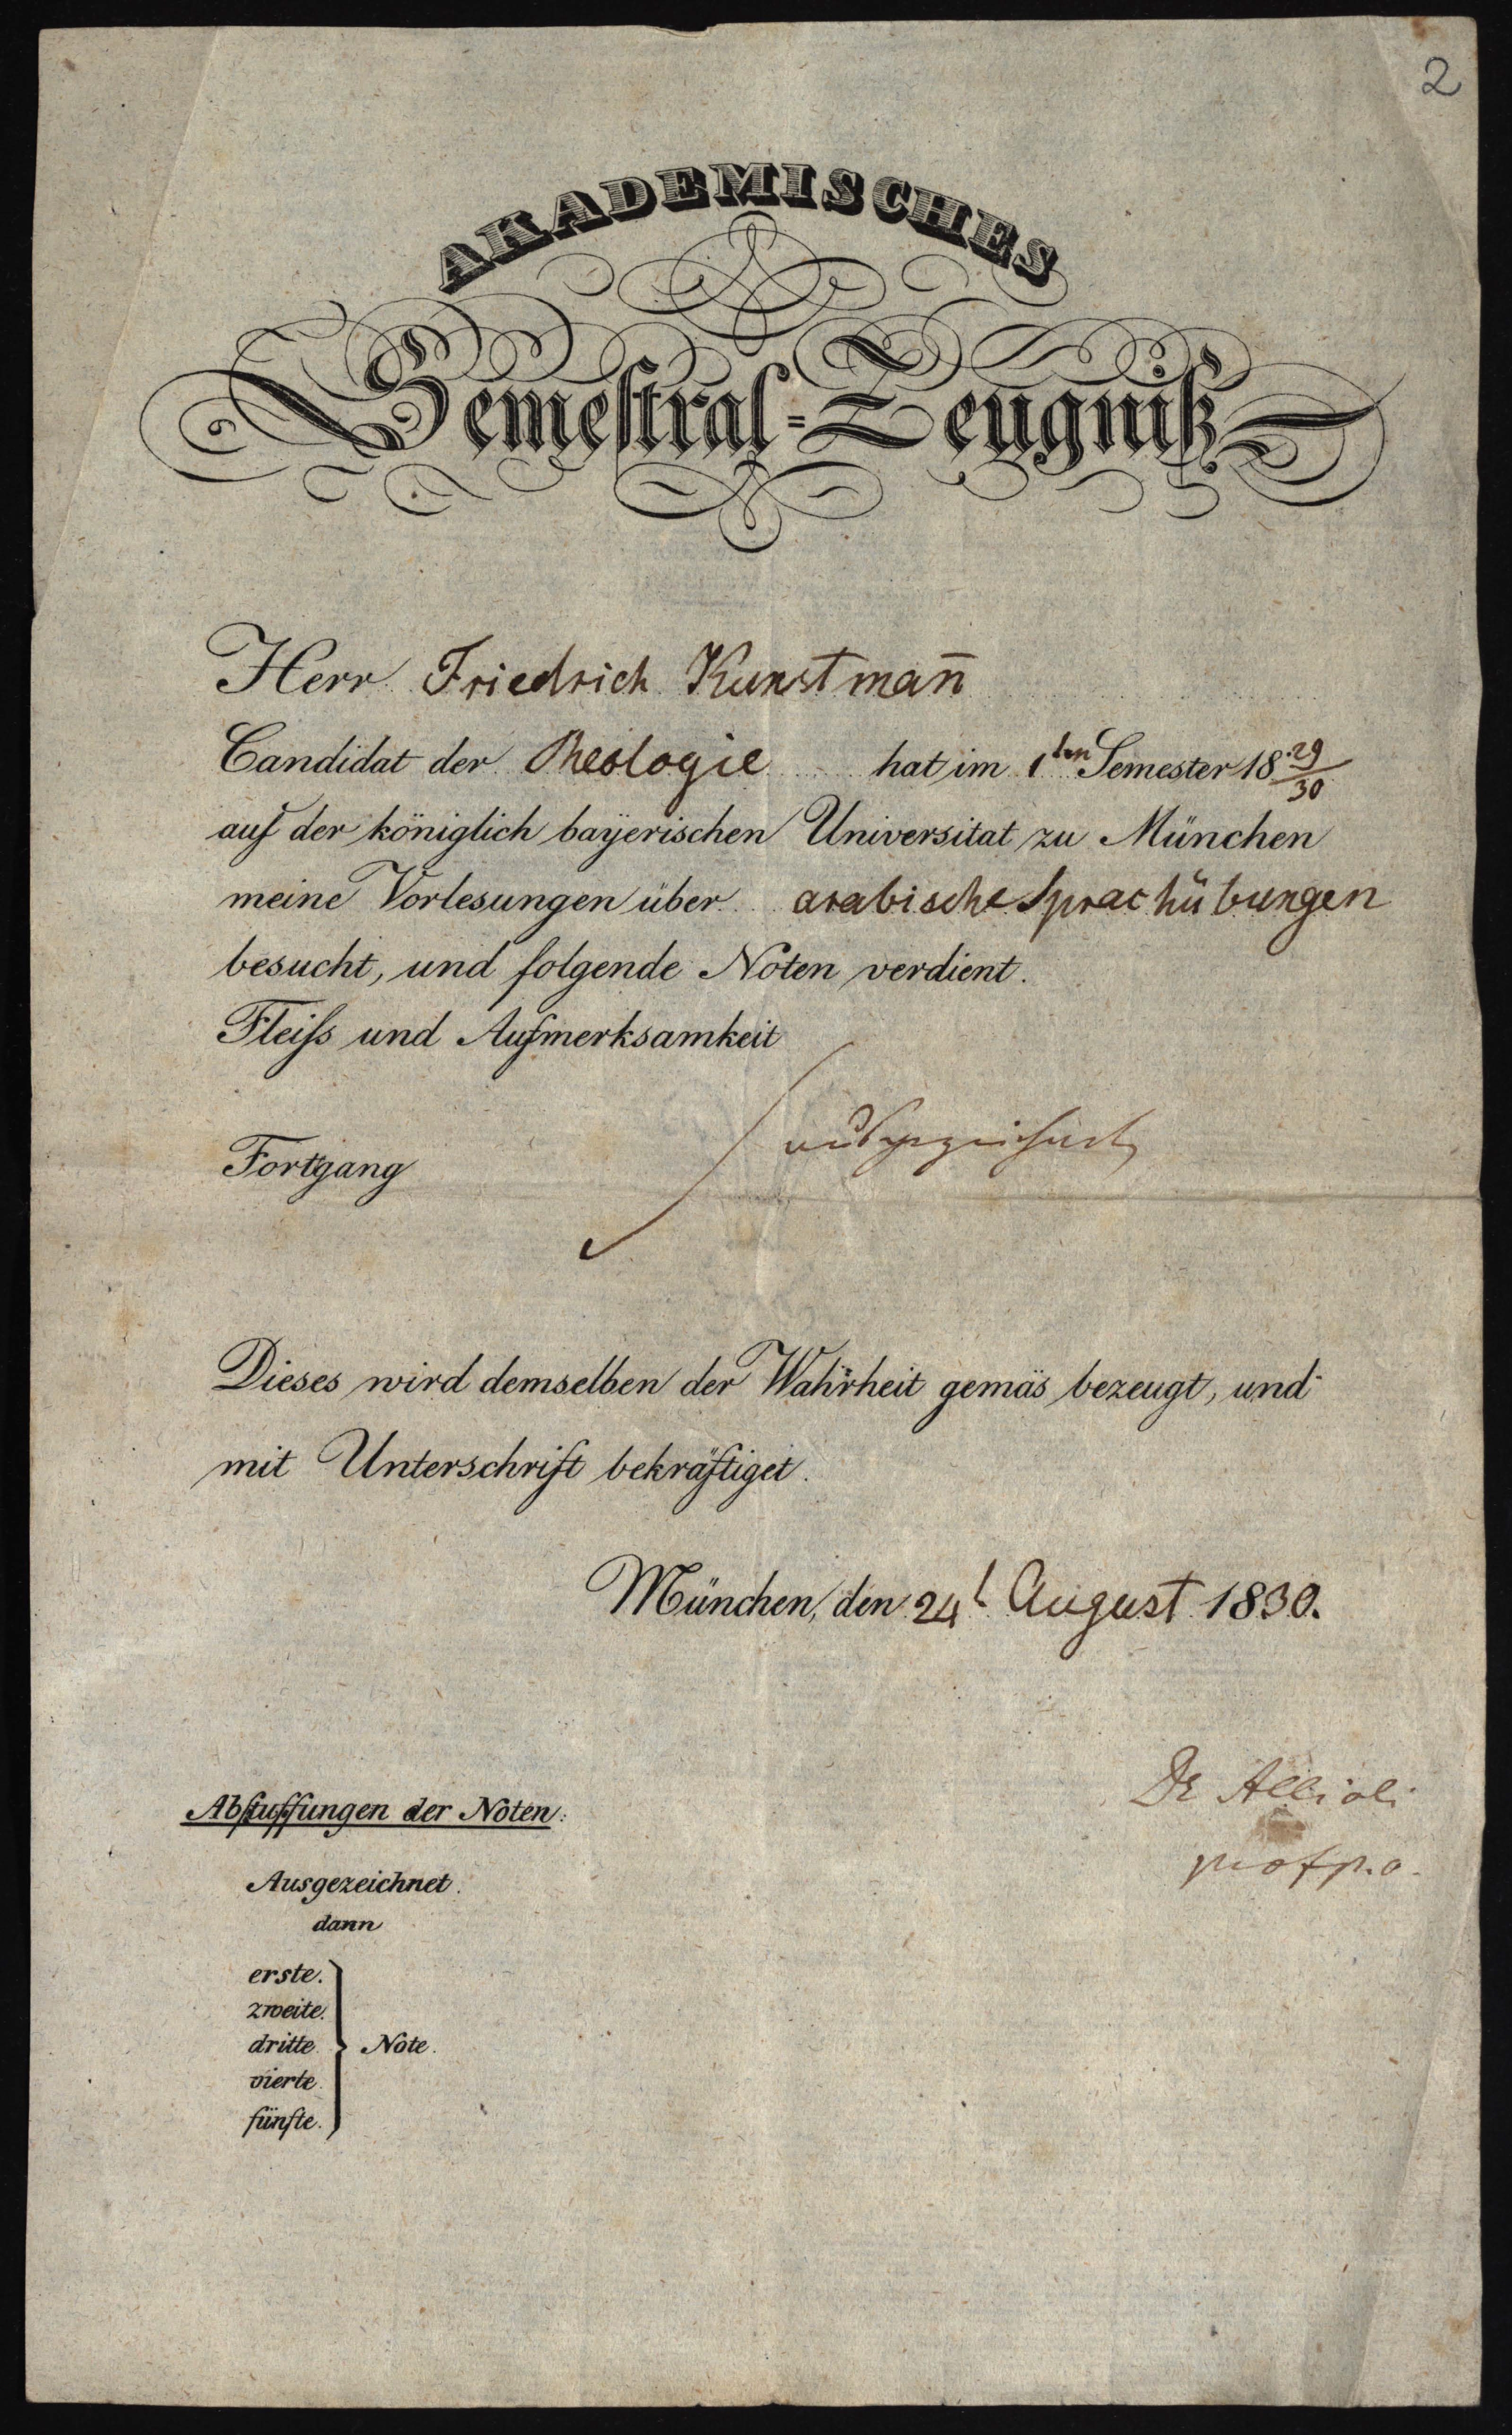 2
AKADEMISCHES
Semestral=Zeugniß
Herr Friedrich Kunstman̄
Candidat der Theologie hat im 1ten Semester 18 29/30
auf der königlich bayerischen Universitat zu München
meine Vorlesungen über arabische Sprachübungen
besucht, und folgende Noten verdient.
Fleiſs und Aufmerksamkeit
ausgezeichnet
Fortgang
Dieses wird demselben der Wahrheit gemäs bezeugt, und
mit Unterschrift bekräftiget.
München, den 24t August 1830.
Dr Allioli
prof p. o.
Abstuffungen der Noten:
Ausgezeichnet.
dann
erste.
zweite.
dritte. Note.
vierte.
fünfte.